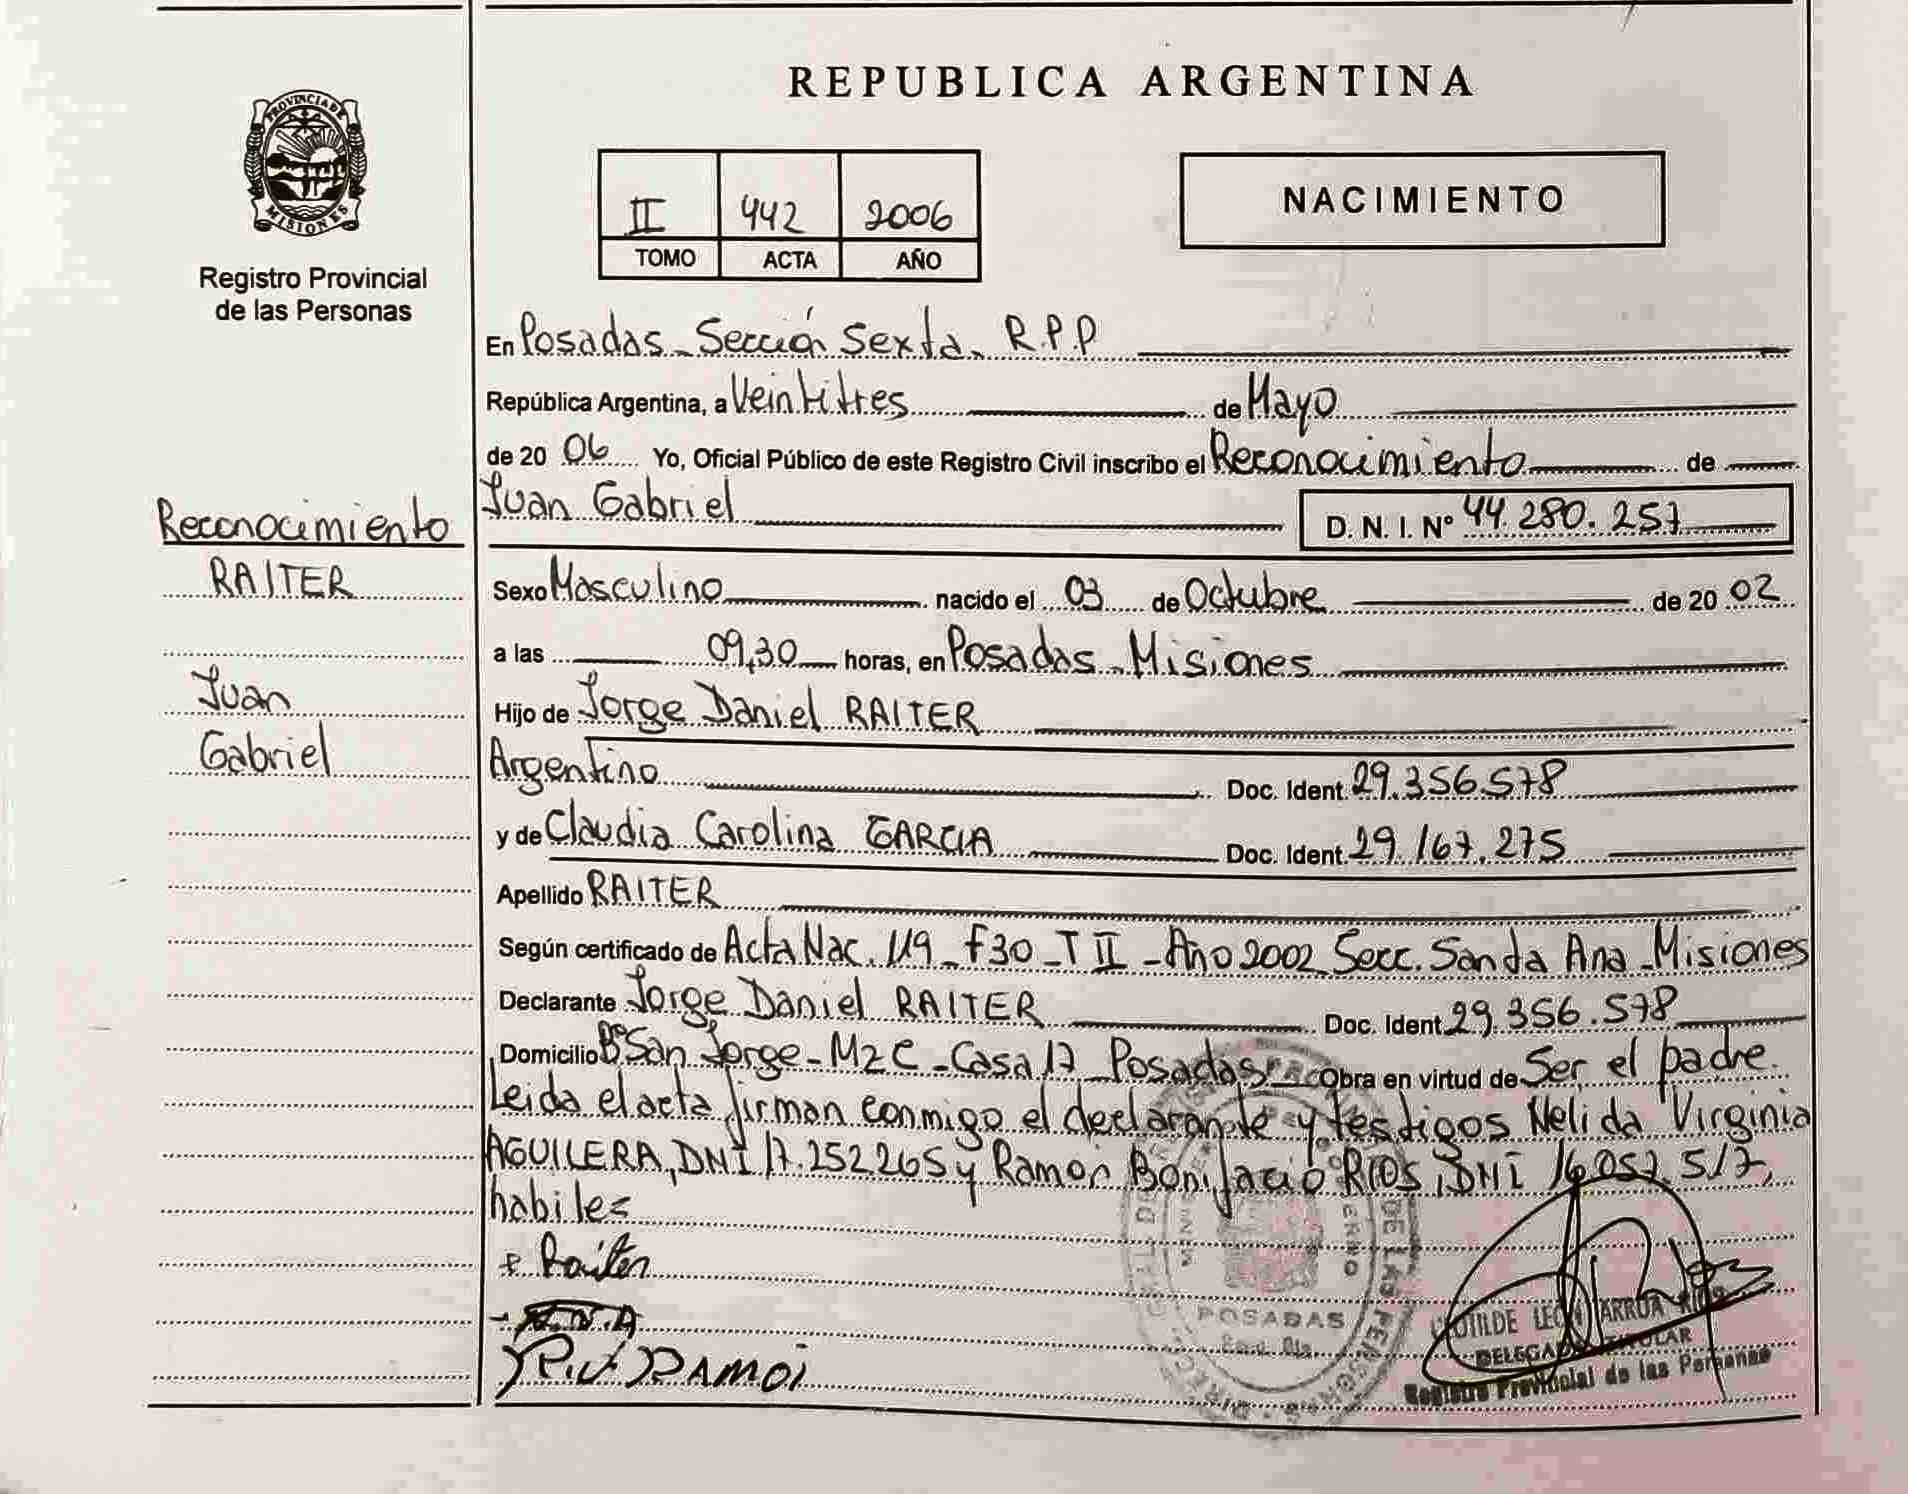 REPUBLICA ARGENTINA
PROVINCIA DE
MISIONES
Registro Provincial
de las Personas
II 442 2006
TOMO ACTA AÑO
NACIMIENTO
En Posadas - Sección Sexta - R.P.P
República Argentina, a Veintitres de Mayo
de 20 06 Yo, Oficial Público de este Registro Civil inscribo el Reconocimiento de
Juan Gabriel D. N. I. Nº 44.280.257
Reconocimiento
RAITER
Juan
Gabriel
Sexo Masculino nacido el 03 de Octubre de 20 02
a las 09,30 horas, en Posadas - Misiones
Hijo de Jorge Daniel RAITER
Argentino Doc. Ident. 29.356.578
y de Claudia Carolina GARCIA Doc. Ident. 29.167.275
Apellido RAITER
Según certificado de Acta Nac. 119 - F30 - T II - Año 2002 Secc. Santa Ana - Misiones
Declarante Jorge Daniel RAITER Doc. Ident. 29.356.578
Domicilio Bº San Jorge - Mz C - Casa 17 - Posadas - Obra en virtud de Ser el padre.
Leida el acta firman conmigo el declarante y testigos Nelida Virginia
AGUILERA, DNI 17.252265 y Ramon Bonifacio RIOS, DNI 16.057.517,
habiles
Raiter
RAMON
POSADAS
DE LAS PERSONAS
LEON ARRUA
DELEGADO TITULAR
Registro Provincial de las Personas